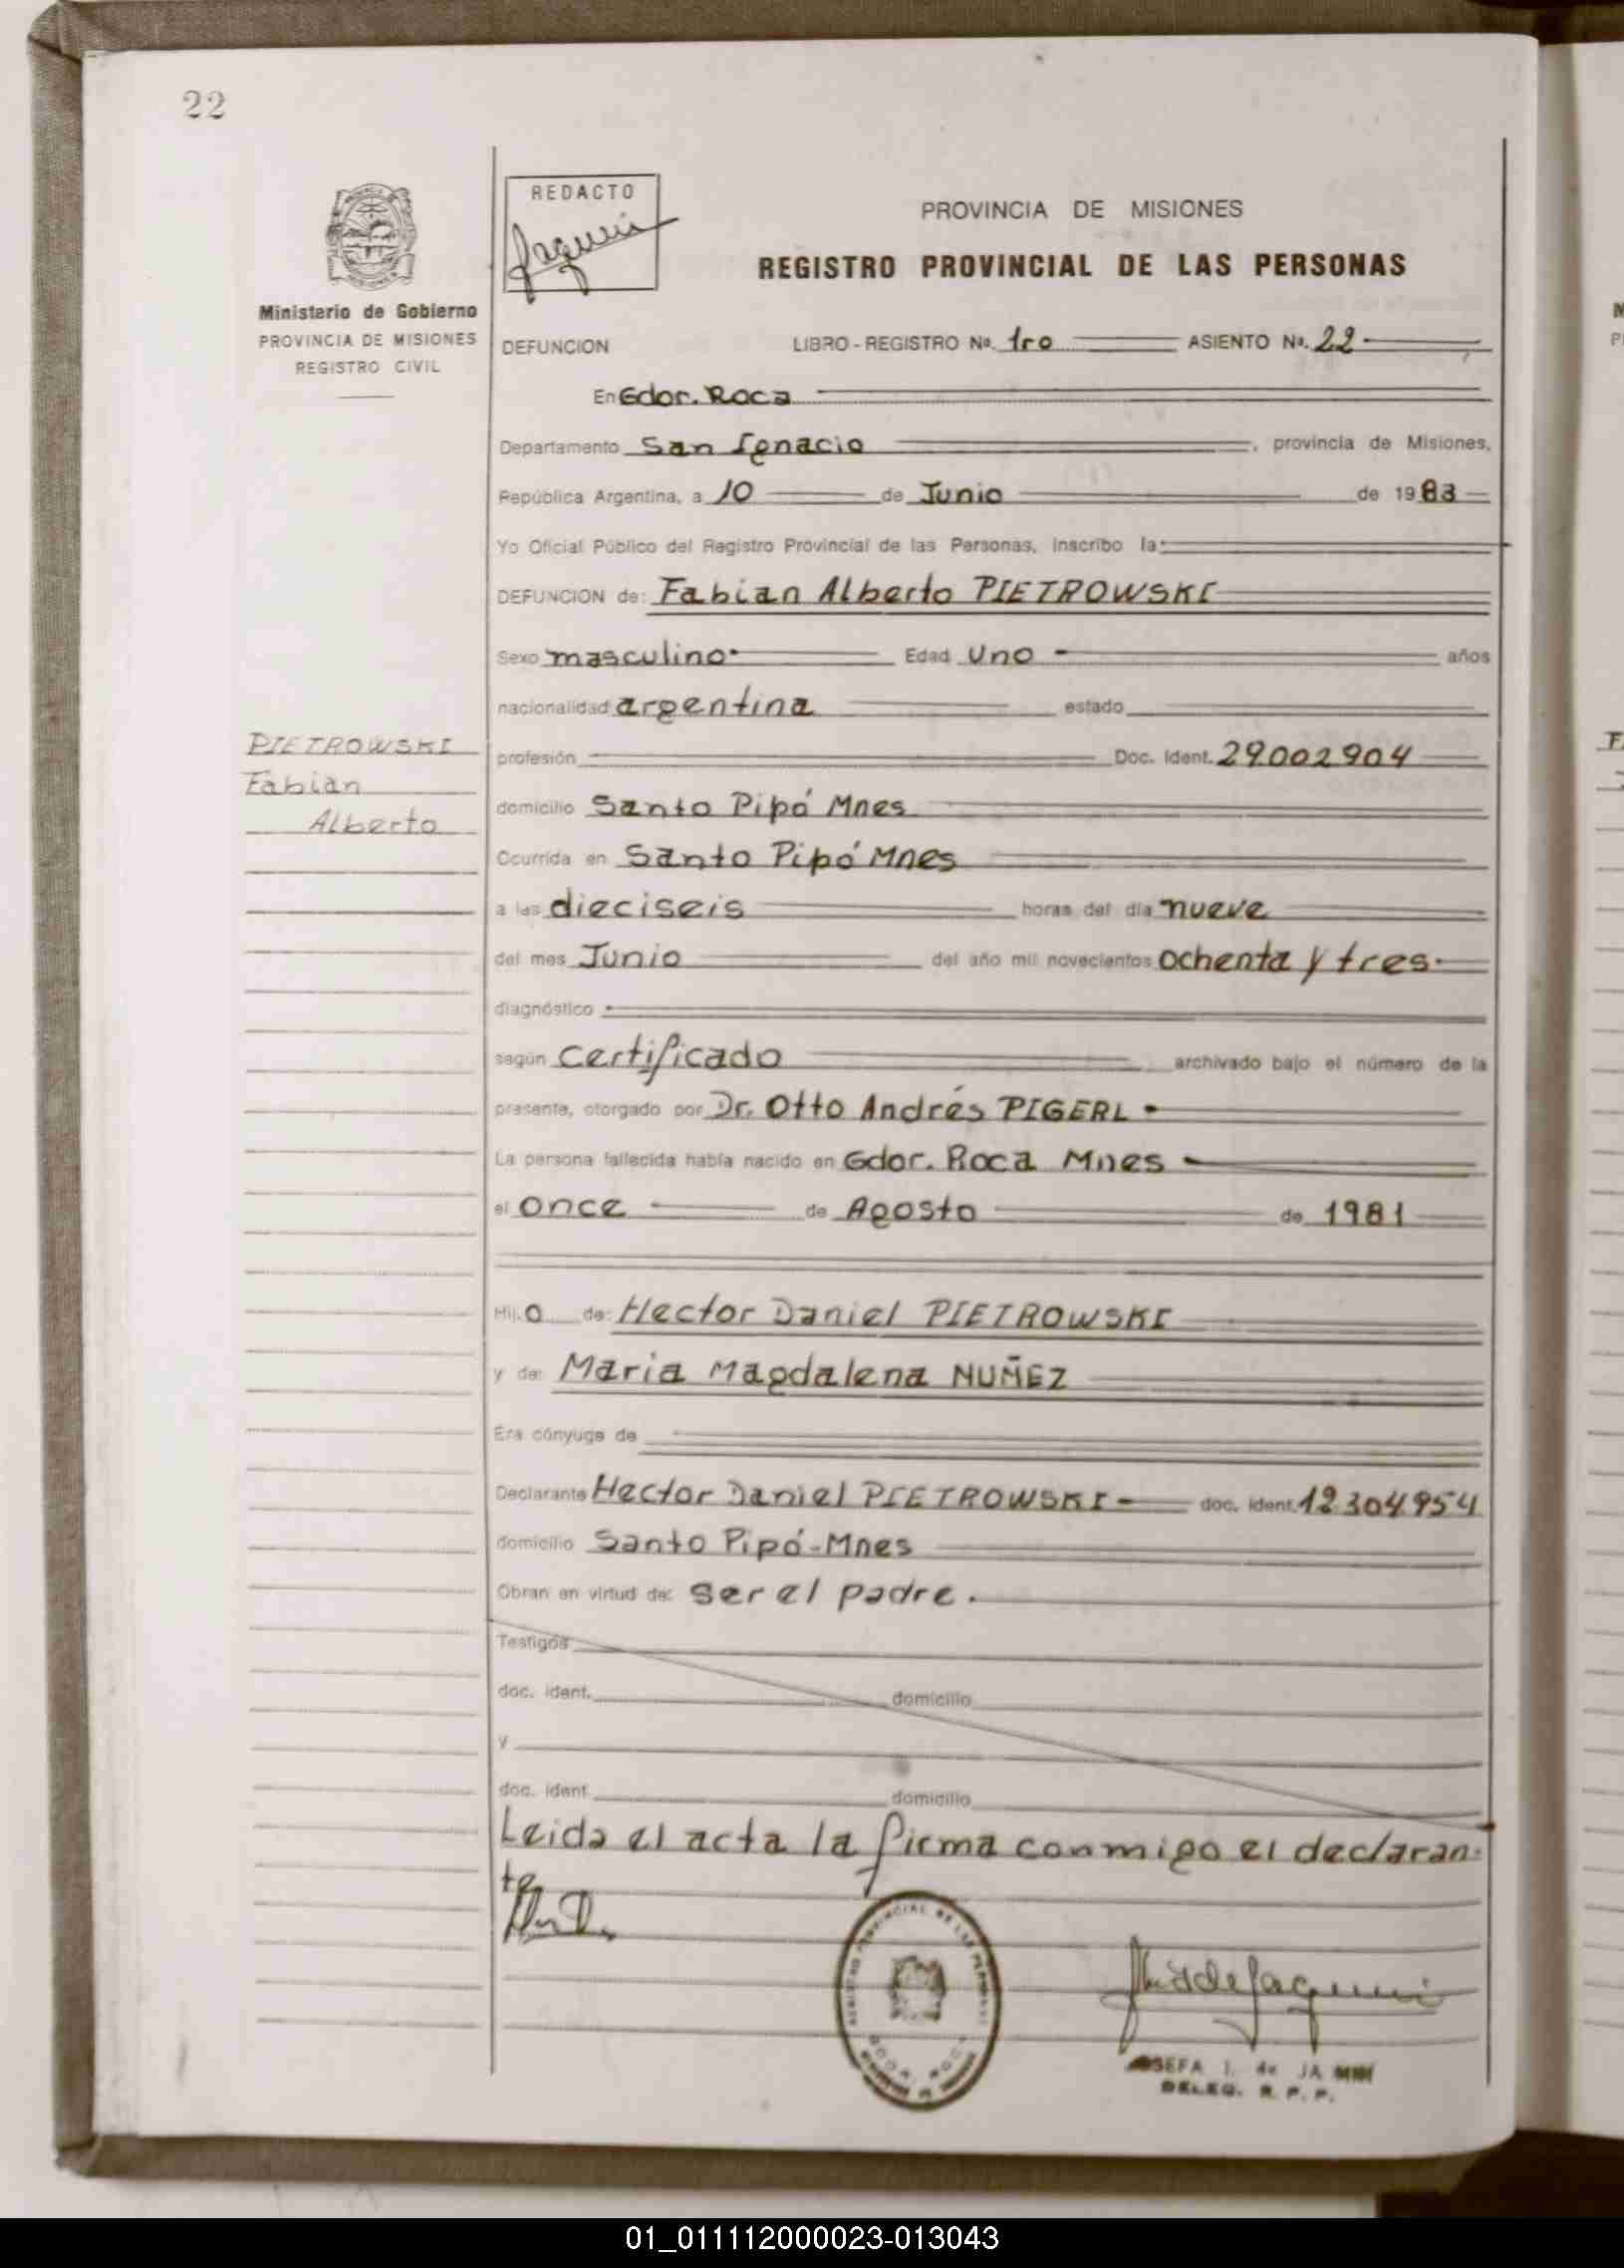 22
REDACTO
PROVINCIA DE MISIONES
REGISTRO PROVINCIAL DE LAS PERSONAS
Ministerio de Gobierno
PROVINCIA DE MISIONES
REGISTRO CIVIL
DEFUNCION LIBRO - REGISTRO No. 1ro ASIENTO No. 22
En Gdor. Roca
Departamento San Ignacio, provincia de Misiones,
República Argentina, a 10 de Junio de 1983
Yo Oficial Público del Registro Provincial de las Personas, inscribo la:
DEFUNCION de: Fabian Alberto PIETROWSKI
Sexo masculino Edad Uno años
nacionalidad argentina estado
PIETROWSKI
Fabian
Alberto
profesión Doc. Ident. 29.002.904
domicilio Santo Pipó Mnes
Ocurrida en Santo Pipó Mnes
a las dieciseis horas del día nueve
del mes Junio del año mil novecientos ochenta y tres
diagnóstico
según certificado archivado bajo el número de la
presente, otorgado por Dr. Otto Andrés PIGERL
La persona fallecida había nacido en Gdor. Roca Mnes
el once de Agosto de 1981
Hijo de: Hector Daniel PIETROWSKI
y de: Maria Magdalena NUÑEZ
Era cónyuge de
Declarante Hector Daniel PIETROWSKI doc. ident. 12.304.954
domicilio Santo Pipó-Mnes
Obran en virtud de: ser el padre.
Testigos
doc. ident. domicilio
y
doc. ident. domicilio
Leida el acta la firma conmigo el declaran-
te
DELEG. R. P. P.
01_011112000023-013043